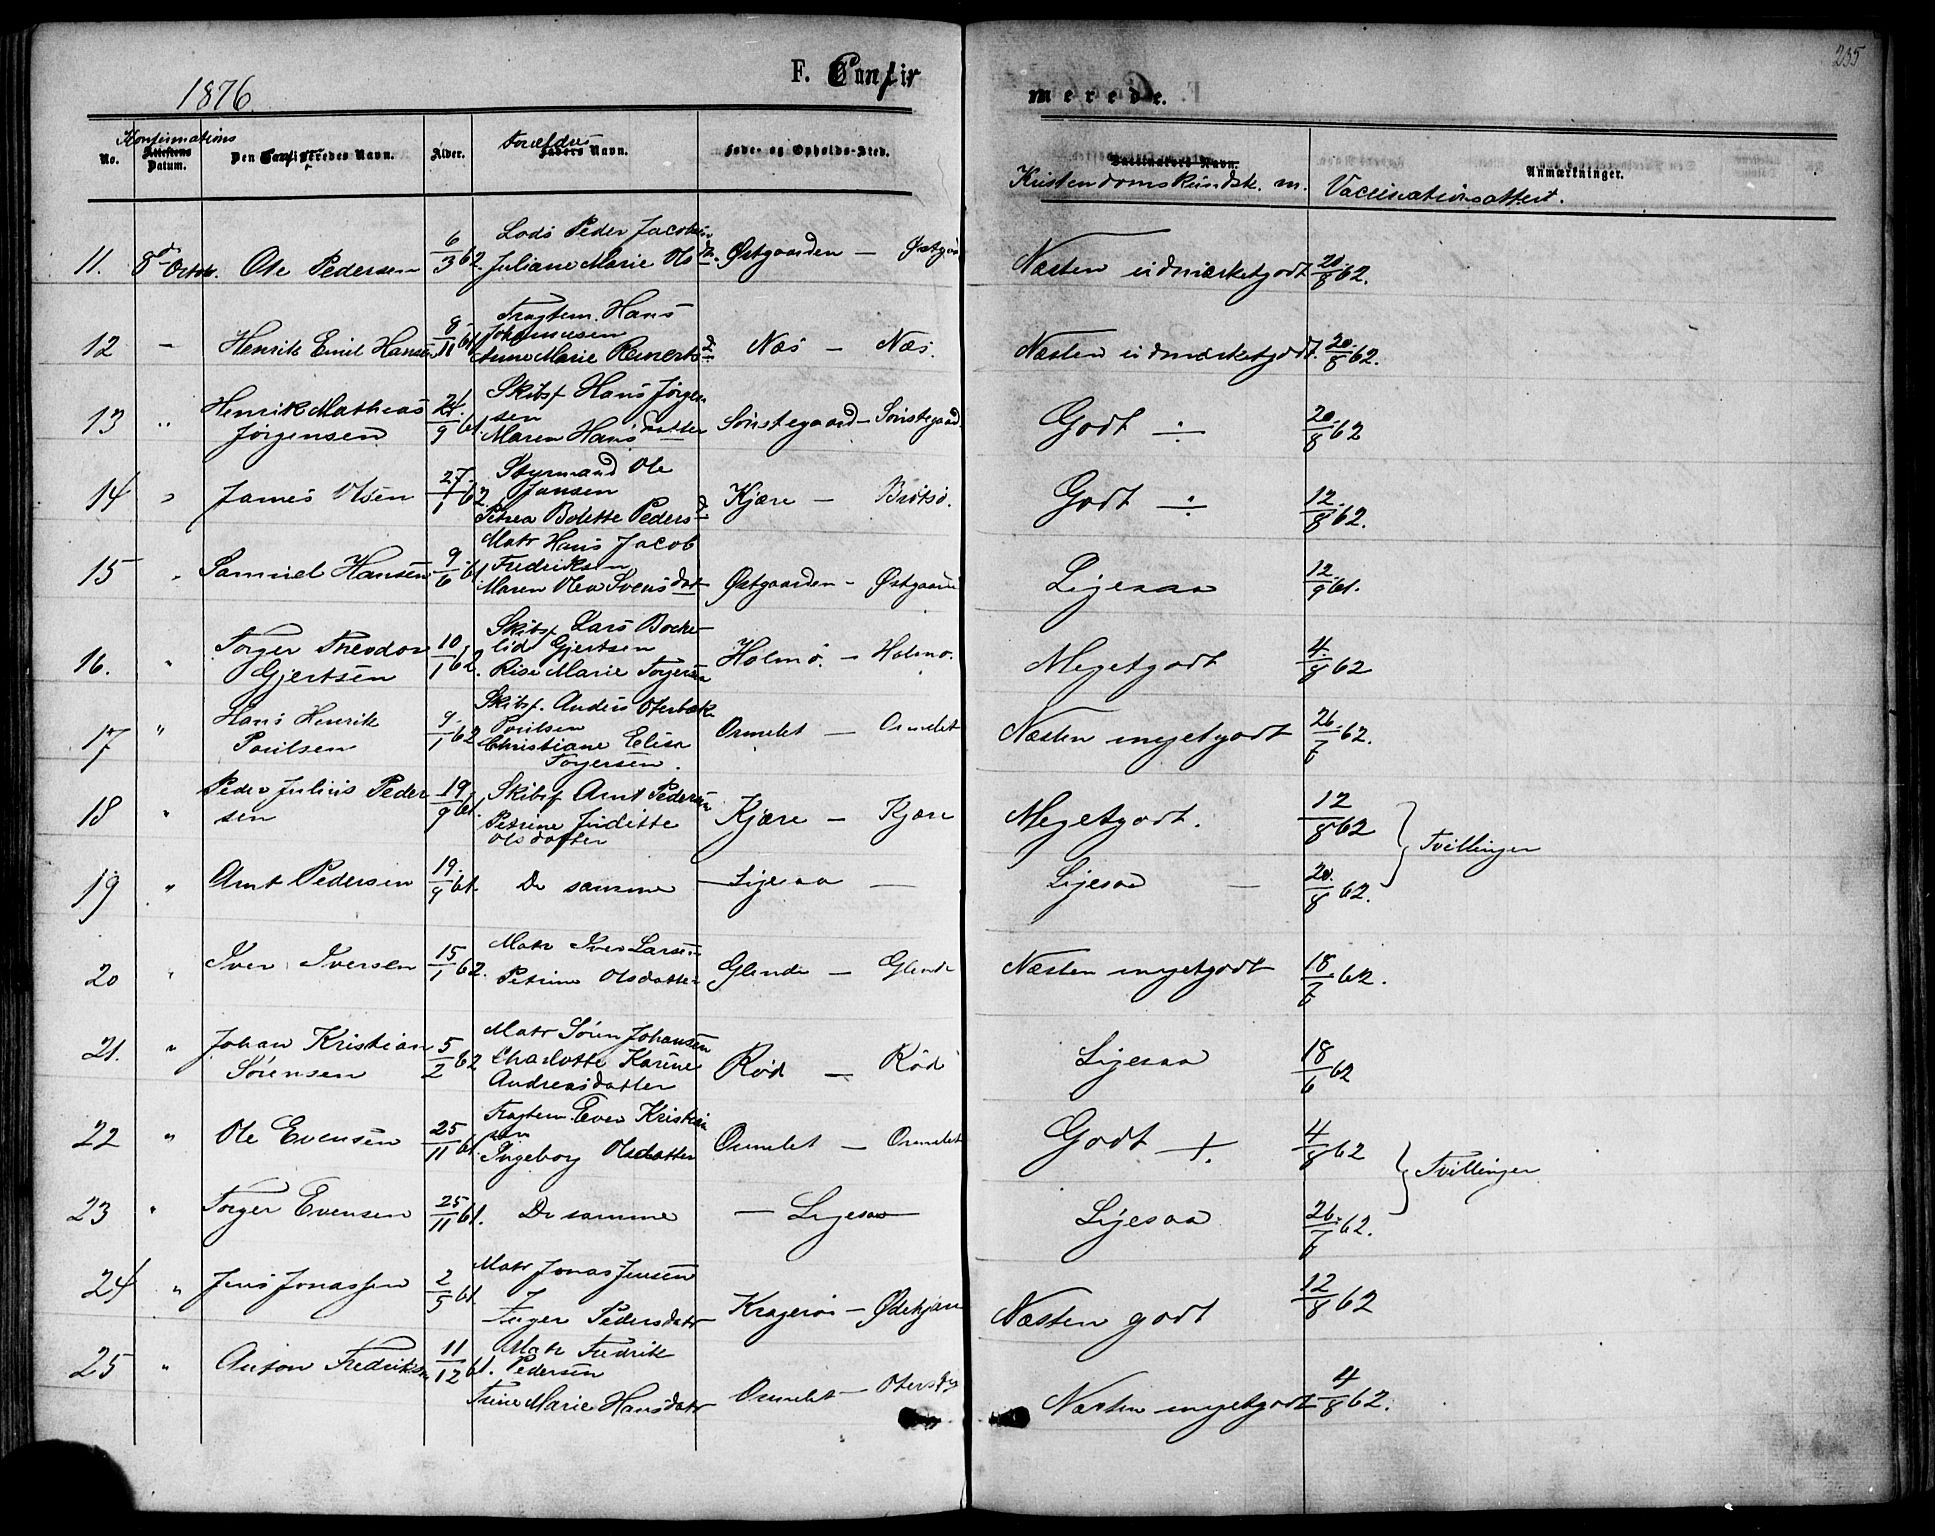 1876
F. Confir
merede.
235
Konfirmations
Forældres
No. Attestens Datum. Den Confirmeredes Navn. Alder. Faders Navn. Føde- og Opholds-Sted.
Kristendomskundsk. m. Vaccinationsattest. Anmærkninger.
11. 8d Octbr. Ole Pedersen 6/3 62. Lods Peder Jacobsen Juliane Marie Olsd. Østgaarden — Østgaa Næsten udmærketgodt 20/8 62.
12 — Henrik Emil Hansen 8/11 61 Fragtem. Hans Johannesen Anne Marie Reinertsd. Næs — Næs. Næsten udmærketgodt. 20/8 62.
13 " Henrik Mathias Jørgensen 24/9 61. Skibsf Hans Jørgensen Maren Hansdatter Sønstegaard — Sønstegaard Godt ÷ 20/8 62
14 " James Olsen 27/1 62. Styrmand Ole Jansen Petrea Bolette Pedersd. Kjære — Brøtsø. Godt ÷ 12/8 62.
15 " Samuel Hansen 9/6 61 Matr Hans Jacob Fredriksen Maren Olea Svensdat Østgaarden — Østgaard Ligesaa 12/9 61.
16. " Torger Theodor Gjertsen 10/1 62. Skibsf Lars Bockelid Gjertsen Rise Marie Torgersen Holmø. — Holmø. Megetgodt 4/8 62
17 " Hans Henrik Poulsen 9/1 62 Skibsf. Anders Oterbæk Poulsen Christiane Elisa Torgersen. Ormelet — Ormelet Næsten megetgodt 26/6 62.
18 " Peder Julius Pedersen 19/9 61. Skibsf Amt Pedersen Petrine Judithe Olsdatter Kjære — Kjære Megetgodt. 12/8 62 } Tvillinger
19 " Amt Pedersen 19/9 61. De samme — Ligesaa — Ligesaa — 20/8 62.
20 " Iver Iversen 15/1 62. Matr Iver Larsen Petrine Olsdatter Glende — Glende Næsten megetgodt 18/6 62.
21. " Johan Kristian Sørensen 5/2 62 Matr Søren Johansen Charlotte Karine Andreasdatter Rød — Rød Ligesaa 18/6 62
22 " Ole Evensen 25/11 61. Fragtem. Even Kristiansen Ingeborg Olsdatter Ormelet — Ormelet Godt +. 4/8 62 } Tvillinger
23 " Torger Evensen 25/11 61. De samme — Ligesaa — Ligesaa 26/6 62.
24 " Jens Jonassen 2/5 61 Matr Jonas Jensen Inger Pedersdatr Kragerøi — Ødekjær Næsten godt 12/8 62
25 " Anton Fredriksen 11/12 61. Matr Fredrik Pedersen Trine Marie Hansdatr Ormelet — Næsten megetgodt 4/8 62.